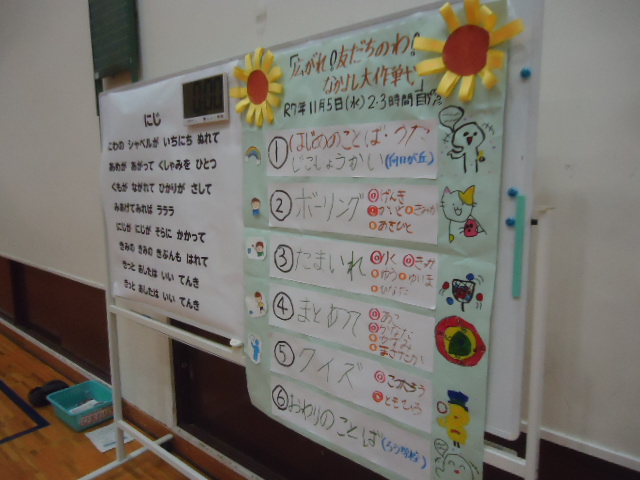 にじ
にわの シャベルが いちにち ぬれて
あめが あがって くしゃみを ひとつ
くもが ながれて ひかりが さして
みあげてみれば ラララ
にじが にじが そらに かかって
きみの きみの きぶんも はれて
きっと あしたは いい てんき
きっと あしたは いい てんき
「広がれ!友だちのわ!
なかよし大作戦」
R7年11月5日(水)2・3時間目
①はじめのことば・うた
じこしょうかい(向日が丘)
②ボーリング
げんき
あさひと
③たまいれ
りく
ゆう
ひなた
④まとあて
⑤クイズ
⑥おわりのことば